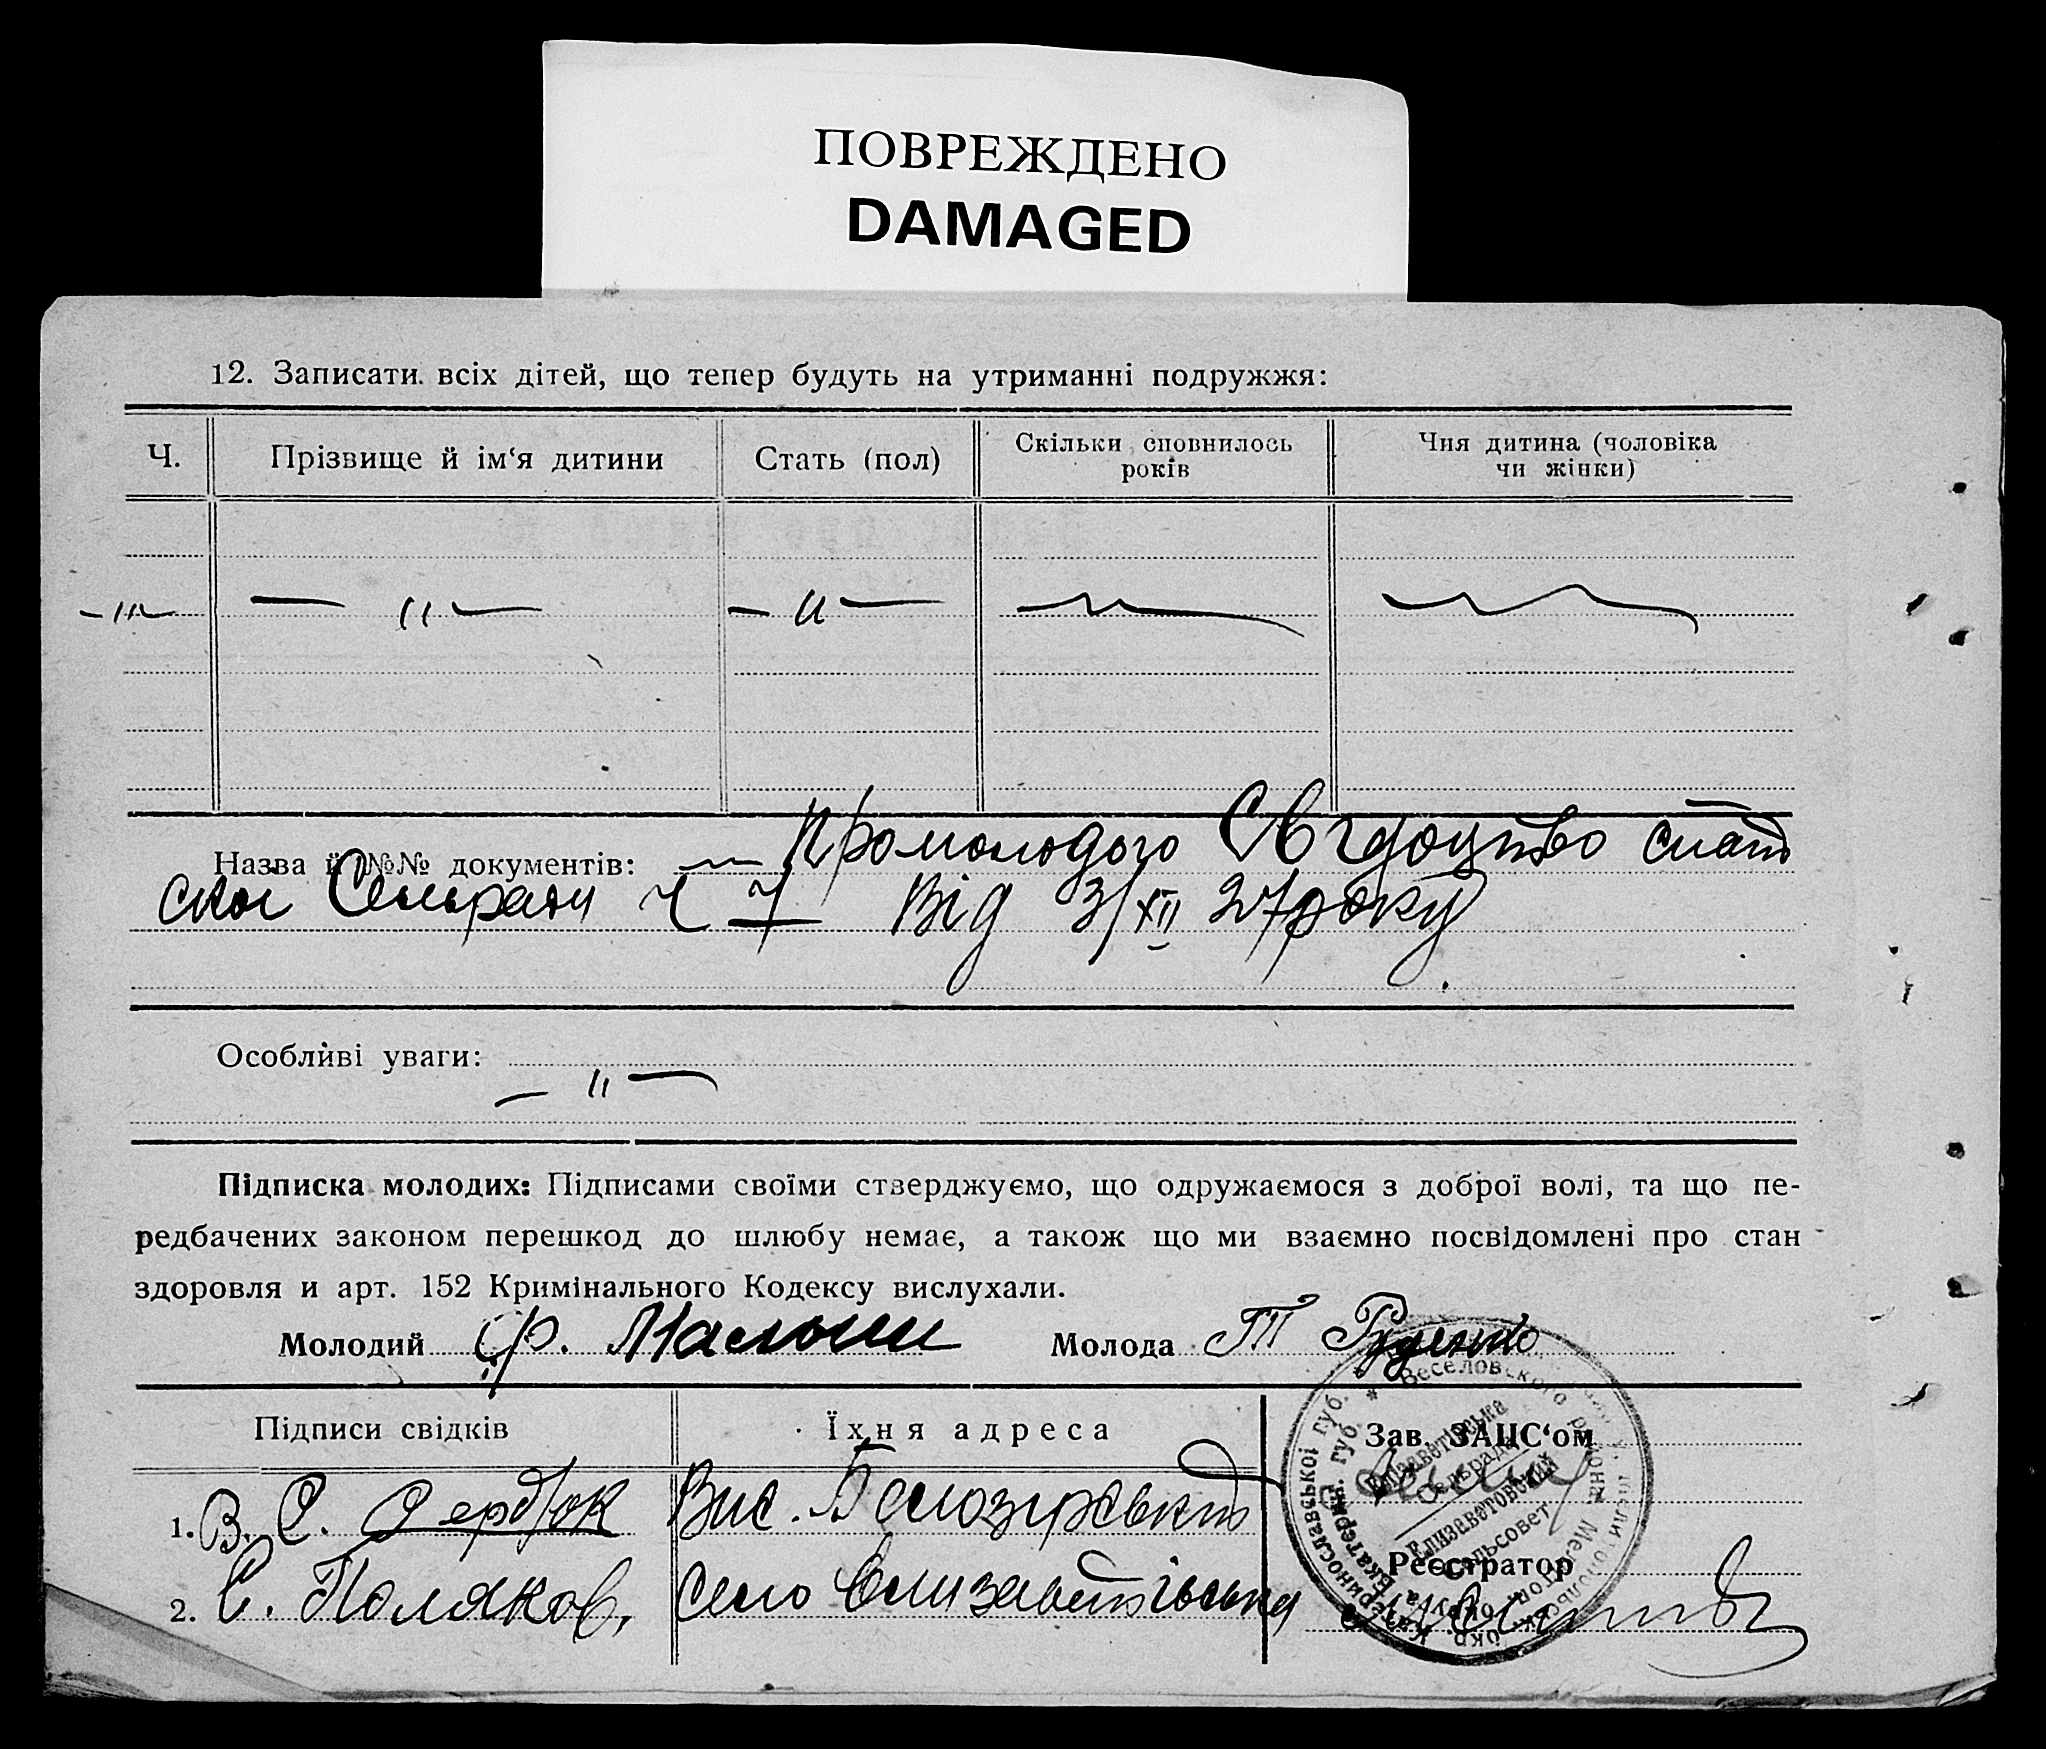 ПОВРЕЖДЕНО
DAMAGED
12. Записати всіх дітей, що тепер будуть на утриманні подружжя:
Ч. Прізвище й ім‘я дитини Стать (пол) Скільки сповнилось років Чия дитина (чоловіка чи жінки)
— " — — " — — " —
Назва й №№ документів: — Про молодого Свідоцтво
скої Сельради Ч 7 Від 3/XII 27 року
Особливі уваги:
— " —
Підписка молодих: Підписами своїми стверджуємо, що одружаємося з доброї волі, та що пе-
редбачених законом перешкод до шлюбу немає, а також що ми взаємно посвідомлені про стан
здоровля и арт. 152 Кримінального Кодексу вислухали.
Молодий Ф. Молода Т Руденко
Підписи свідків Їхня адреса Зав. ЗАЦС‘ом
1. В. С. Сердюк Вис.
Реєстратор
2. С. Поляков, село
Катеринославської губ. * Веселовського району Мелітопольск. окр.
Єлизаветівська
сельрада
Елизаветовский
сельсовет